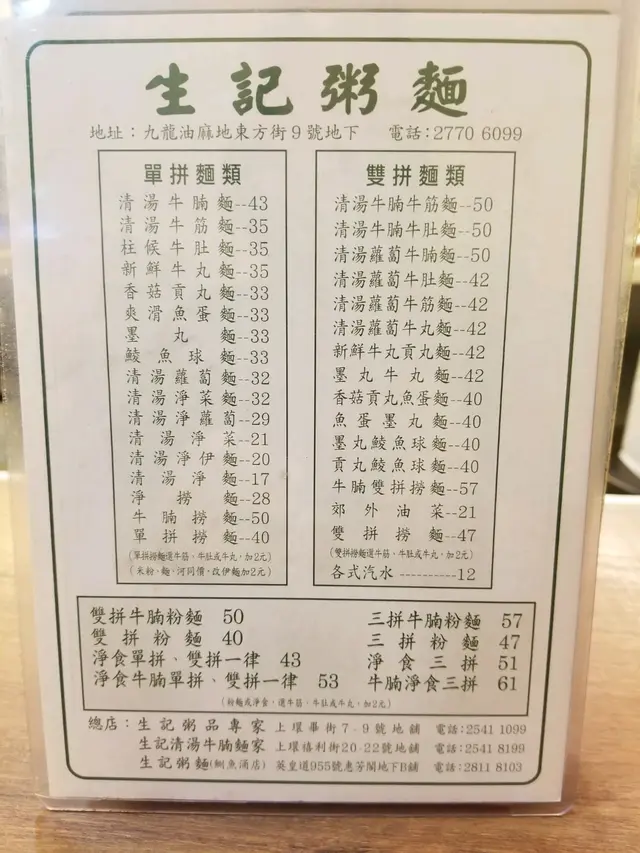 生記粥麵
地址：九龍油麻地東方街9號地下 電話：2770 6099
單拼麵類
清湯牛腩麵--43
清湯牛筋麵--35
柱候牛肚麵--35
新鮮牛丸麵--35
香菇貢丸麵--33
爽滑魚蛋麵--33
墨丸麵--33
鯪魚球麵--33
清湯蘿蔔麵--32
清湯淨菜麵--32
清湯淨蘿蔔--29
清湯淨菜--21
清湯淨伊麵--20
清湯淨麵--17
淨撈麵--28
牛腩撈麵--50
單拼撈麵--40
(單拼撈麵選牛筋、牛肚或牛丸，加2元)
(米粉、麵、河同價，改伊麵加2元)
雙拼麵類
清湯牛腩牛筋麵--50
清湯牛腩牛肚麵--50
清湯蘿蔔牛腩麵--50
清湯蘿蔔牛肚麵--42
清湯蘿蔔牛筋麵--42
清湯蘿蔔牛丸麵--42
新鮮牛丸貢丸麵--42
墨丸牛丸麵--42
香菇貢丸魚蛋麵--40
魚蛋墨丸麵--40
墨丸鯪魚球麵--40
貢丸鯪魚球麵--40
牛腩雙拼撈麵--57
郊外油菜--21
雙拼撈麵--47
(雙拼撈麵選牛筋、牛肚或牛丸，加2元)
各式汽水----------12
雙拼牛腩粉麵 50
雙拼粉麵 40
淨食單拼、雙拼一律 43
淨食牛腩單拼、雙拼一律 53
三拼牛腩粉麵 57
三拼粉麵 47
淨食三拼 51
牛腩淨食三拼 61
(粉麵或淨食，選牛筋、牛肚或牛丸，加2元)
總店：生記粥品專家 上環畢街7-9號地舖 電話：2541 1099
生記清湯牛腩麵家 上環禧利街20-22號地舖 電話：2541 8199
生記粥麵(鰂魚涌店) 英皇道955號惠芳閣地下B舖 電話：2811 8103